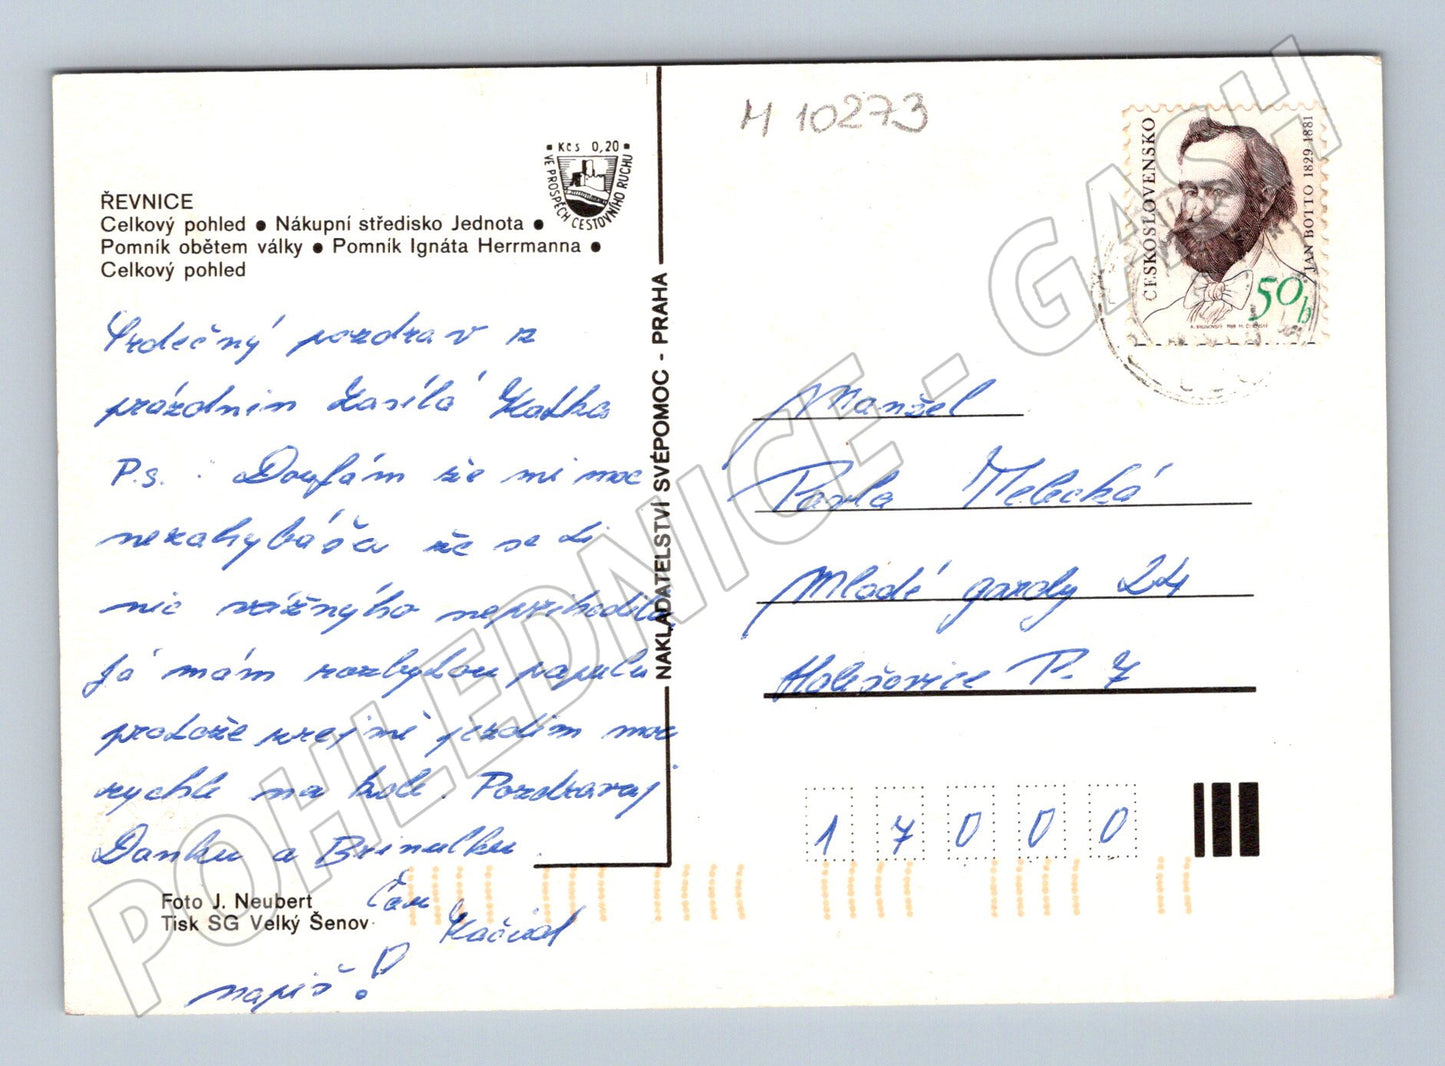 M 10273
ČESKOSLOVENSKO
JAN BOTTO 1829-1881
50h
Kčs 0,20
VE PROSPĚCH CESTOVNÍHO RUCHU
ŘEVNICE
Celkový pohled ● Nákupní středisko Jednota ●
Pomník obětem války ● Pomník Ignáta Herrmanna ●
Celkový pohled
Srdečný pozdrav z
prázdnin Zasílá Katka
P.s. : Doufám že mi moc
nezahybáša že se ti
nic vážnýho nepřihodilo
Já mám rozbytou papulu
protože zřejmě jezdím moc
rychle na kole. Pozdravuj
Danku a
Čau
napiš!
Foto J. Neubert
Tisk SG Velký Šenov
NAKLADATELSTVÍ SVÉPOMOC - PRAHA
Manžel
Pavla Melecká
Mladé gardy 24
Holešovice P-7
17000
POHLEDNICE - GASH